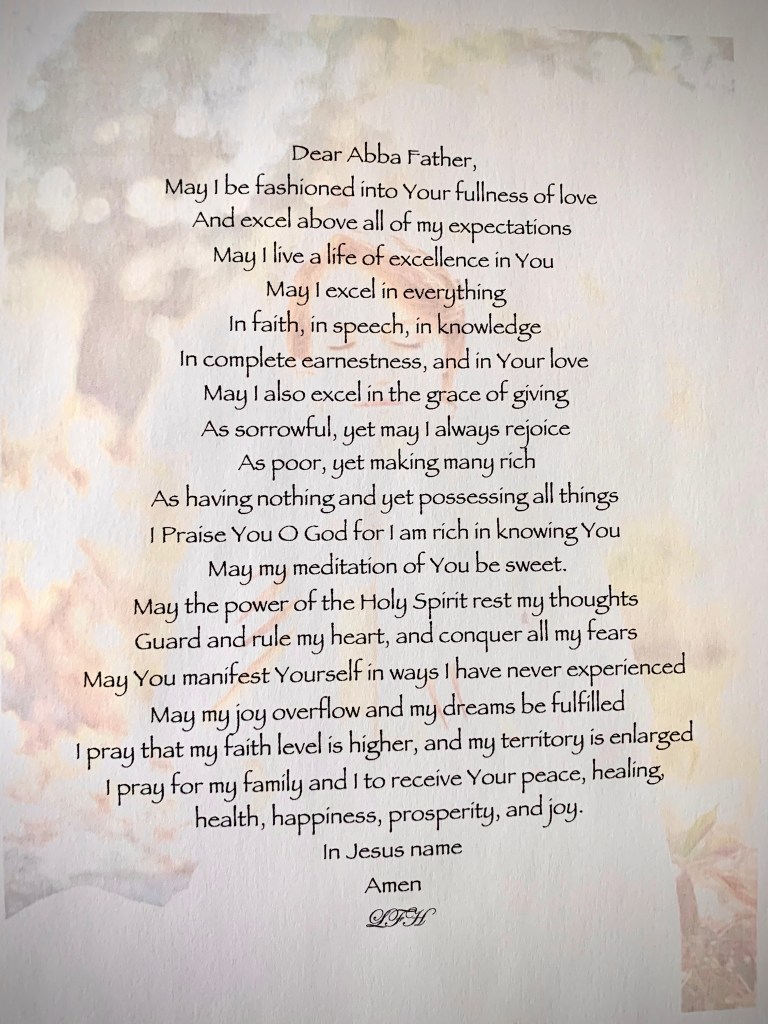 Dear Abba Father,
May I be fashioned into Your fullness of love
And excel above all of my expectations
May I live a life of excellence in You
May I excel in everything
In faith, in speech, in knowledge
In complete earnestness, and in Your love
May I also excel in the grace of giving
As sorrowful, yet may I always rejoice
As poor, yet making many rich
As having nothing and yet possessing all things
I Praise You O God for I am rich in knowing You
May my meditation of You be sweet.
May the power of the Holy Spirit rest my thoughts
Guard and rule my heart, and conquer all my fears
May You manifest Yourself in ways I have never experienced
May my joy overflow and my dreams be fulfilled
I pray that my faith level is higher, and my territory is enlarged
I pray for my family and I to receive Your peace, healing,
health, happiness, prosperity, and joy.
In Jesus name
Amen
LFH